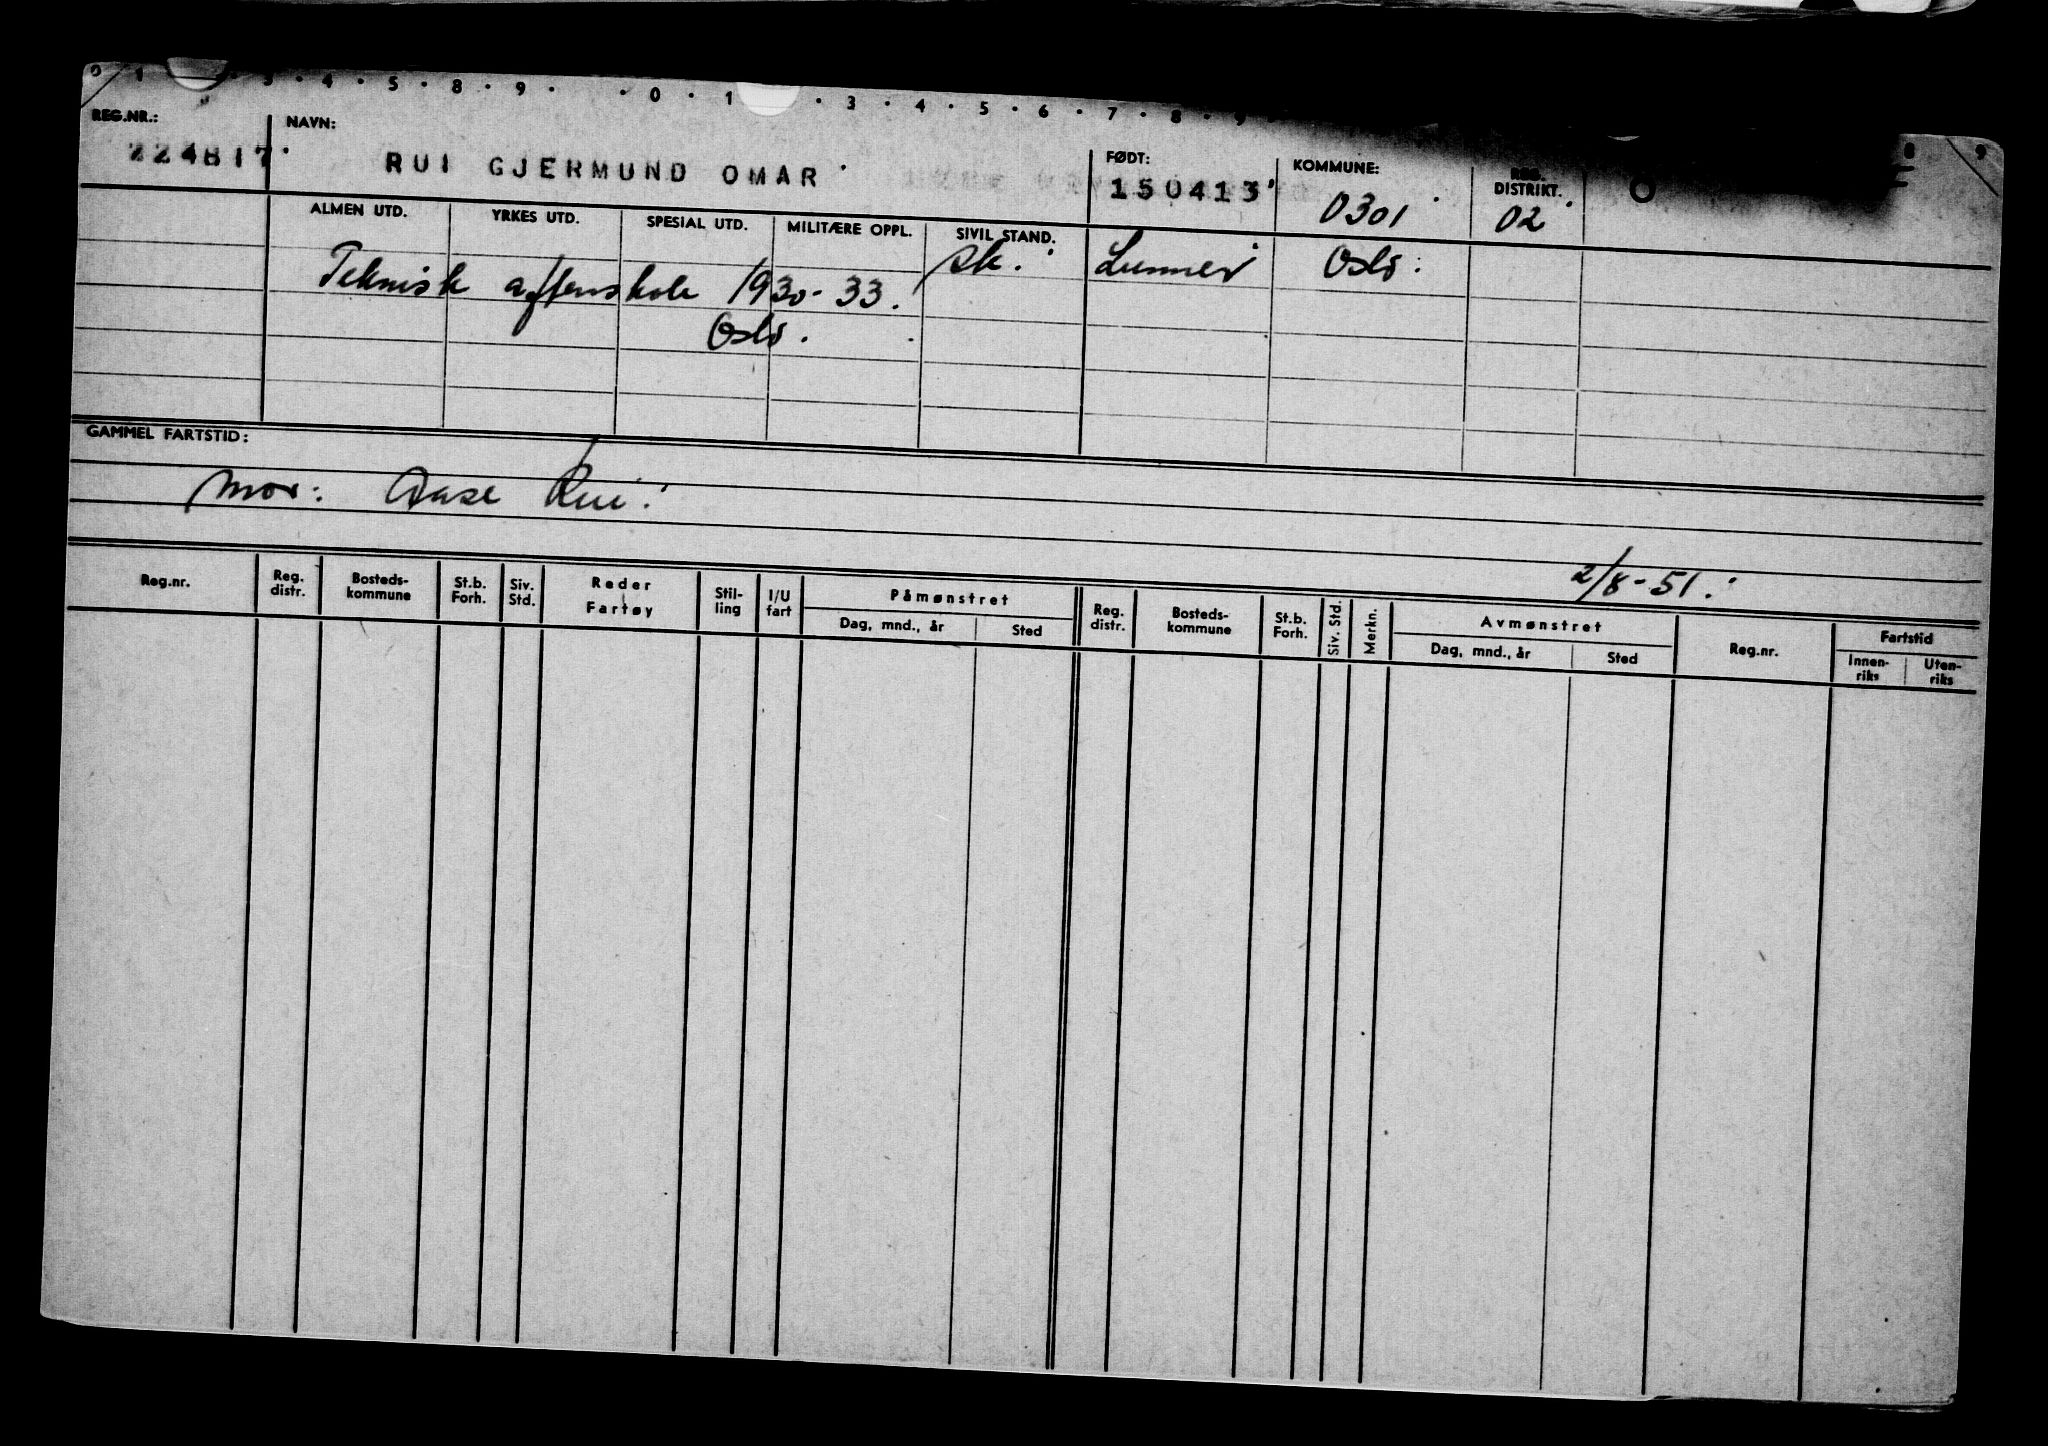 0 1 3 · 4 · 5 · 8 · 9 · · 0 · 1 · 3 · 4 · 5 · 6 · 7 · 8 · 9 8 9
REG.NR.: NAVN: FØDT: KOMMUNE: REG. DISTRIKT.
224817 RUI GJERMUND OMAR 150413 0301 02 O
ALMEN UTD. YRKES UTD. SPESIAL UTD. MILITÆRE OPPL. SIVIL STAND.
sk. Lunner Oslo
Teknisk aftenskole 1930-33.
Oslo.
GAMMEL FARTSTID:
Mor: Aase Rui.
2/8-51.
Reg.nr. Reg. distr. Bosteds-kommune St.b. Forh. Siv. Std. Reder Fartøy Stil-ling I/U fart Påmønstret Reg. distr. Bosteds-kommune St.b. Forh. Siv. Std. Merkn. Avmønstret Reg.nr. Fartstid
Dag, mnd., år Sted Dag, mnd., år Sted Innen-riks Uten-riks